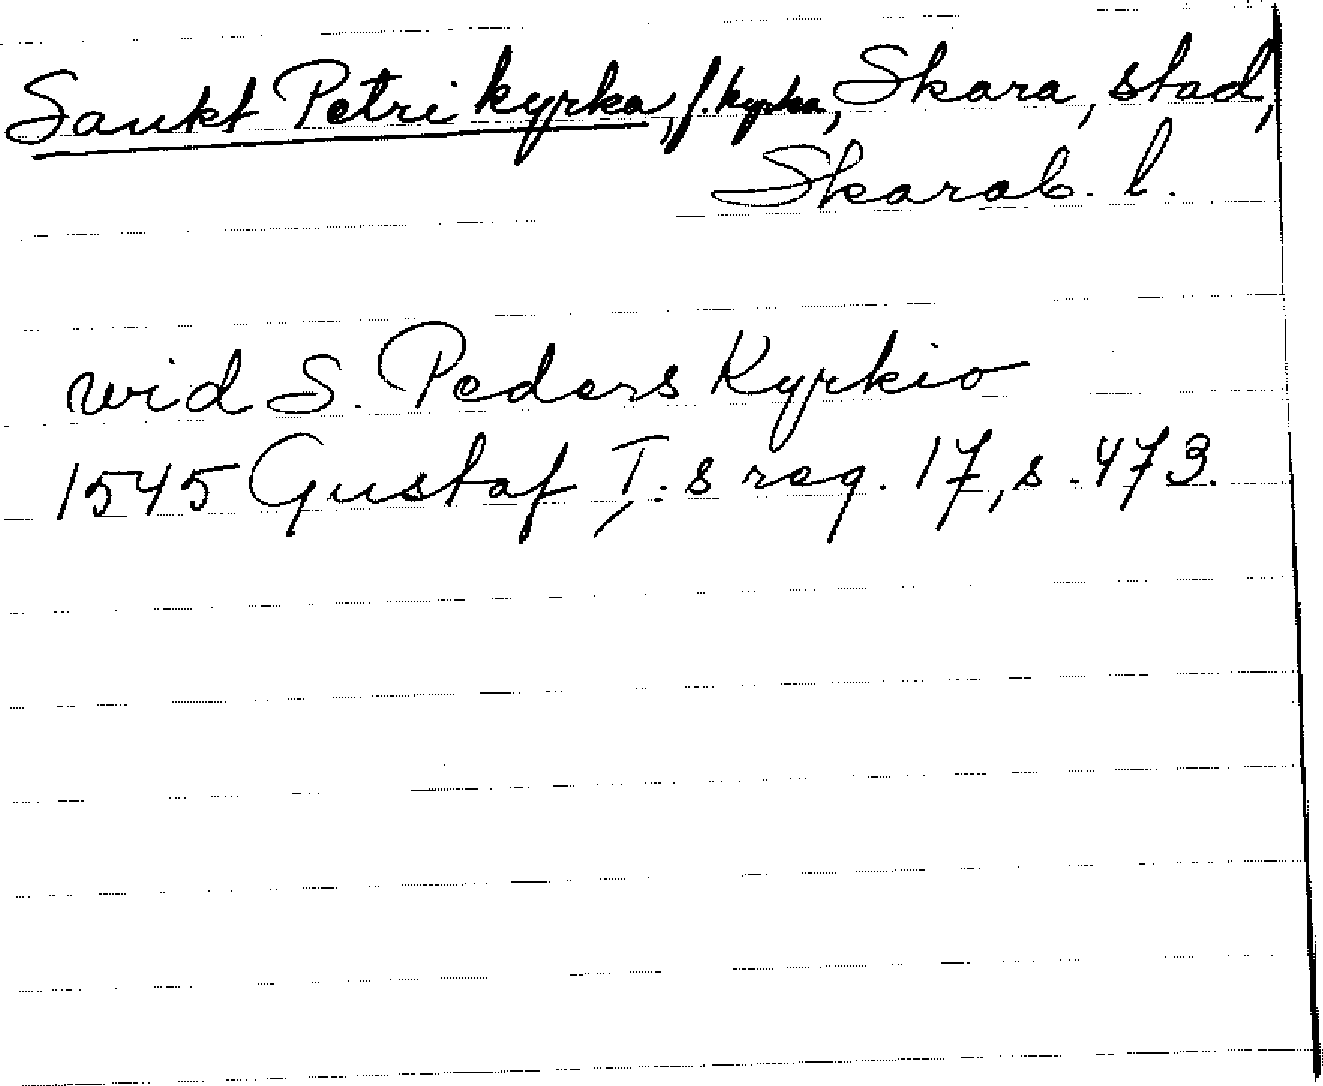 Sankt Petri kyrka, f. kyrka, Skara, stad,
Skarab. l.
wid S. Peders Kyrkio
1545 Gustaf I:s reg. 17, s. 473.